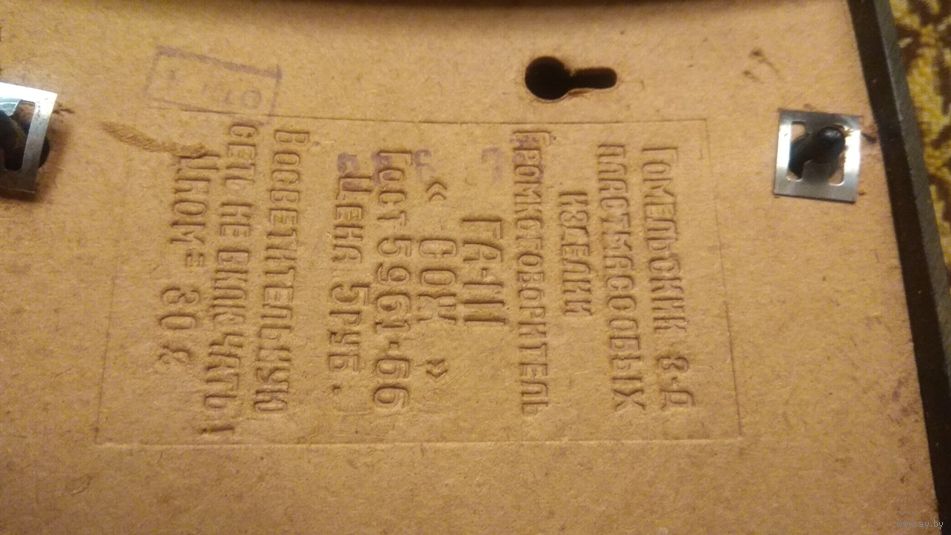 Гомельский з-д
пластмассовых
изделий
Громкоговоритель
ГА-III
« СОЖ »
Гост 5961-66
Цена 5руб.
В осветительную
сеть не включать!
Uном = 30 в
www.ay.by